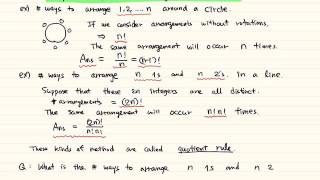 ex) # ways to arrange 1, 2, ..., n around a circle.
If we consider arrangements without rotations.
⇒ n!
The same arrangement will occur n times.
Ans = n!/n = (n-1)!
ex) # ways to arrange n 1s and n 2's. In a line.
Suppose that these 2n integers are all distinct.
# arrangements = (2n)!
The same arrangement will occur n! n! times.
Ans = (2n)!/n! n!
These kinds of method are called quotient rule.
Q: What is the # ways to arrange n 1s and n 2